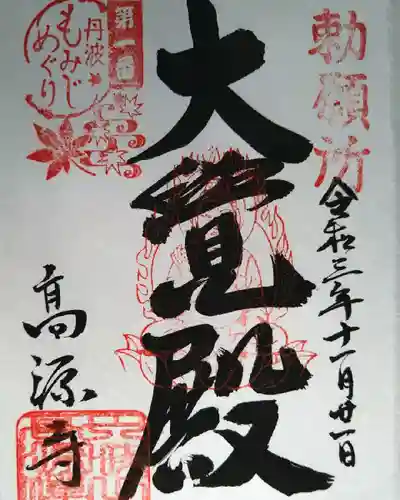 勅願所
令和三年十一月廿一日
大覺殿
第一番
丹波
もみじ
めぐり
高源寺